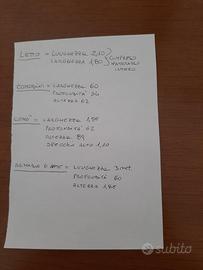 LETTO = LUNGHEZZA 2,10
LARGHEZZA 1,80
COMPRESO
MATERASSO
INTERO
COMODINI = LARGHEZZA 60
PROFONDITÀ 34
ALTEZZA 62
COMÒ = LARGHEZZA 1,35
PROFONDITÀ 62
ALTEZZA 89
SPECCHIO ALTO 1,10
ARMADIO 6 ANTE = LUNGHEZZA 3 met.
PROFONDITÀ 60
ALTEZZA
subito